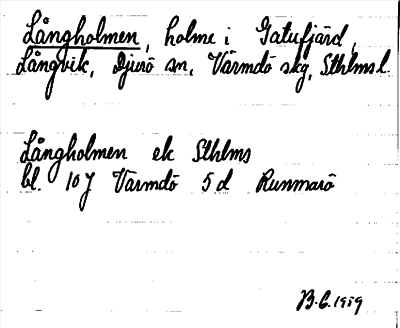 Långholmen, holme i Gatufjärd,
Långvik, Djurö sn, Värmdö skg, Sthlms l.
Långholmen ek Sthlms
bl. 10 J Värmdö 5 d Runmarö
B.G. 1959